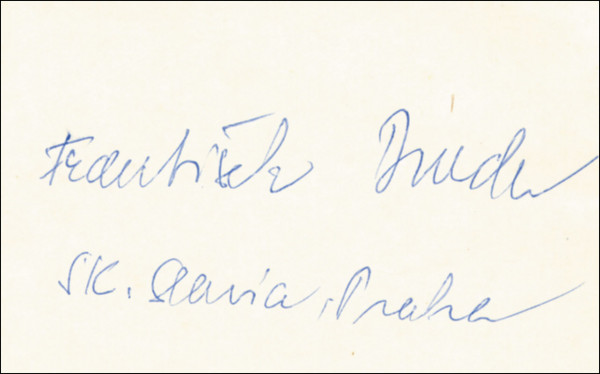 František
SK. Slavia, Praha